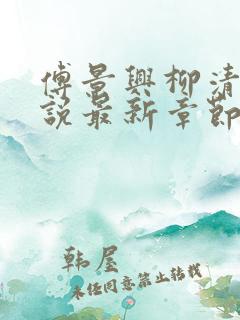 傅景興柳清
說最新章節
韩屋
未经同意禁止转载